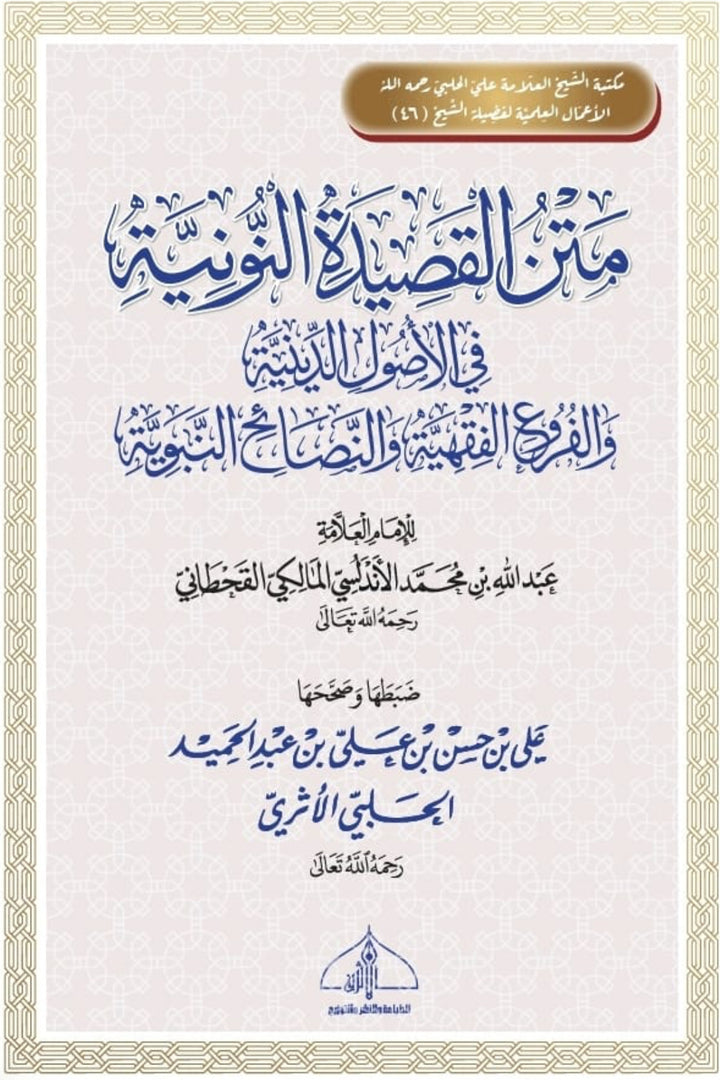 مكتبة الشيخ العلّامة عليّ الحلبيّ رحمه الله
الأعمال العلميّة لفضيلة الشّيخ (٤٦)
مَتْنُ القَصِيدَةِ النُّونِيَّةِ
فِي الأُصُولِ الدِّينِيَّةِ
وَالفُرُوعِ الفِقْهِيَّةِ وَالنَّصَائِحِ النَّبَوِيَّةِ
لِلإِمَامِ العَلَّامَةِ
عَبْدِ اللهِ بْنِ مُحَمَّدٍ الأَنْدَلُسِيِّ المَالِكِيِّ القَحْطَانِيِّ
رَحِمَهُ اللَّه تَعَالَى
ضَبَطَهَا وَصَحَّحَهَا
عَلي بْن حسَن بْن عَليّ بْن عَبْدِ الحَمِيد
الحَلَبيّ الأثَريّ
رَحِمَهُ اللَّهُ تَعَالَى
الأثرية
للطباعة والنشر والتوزيع